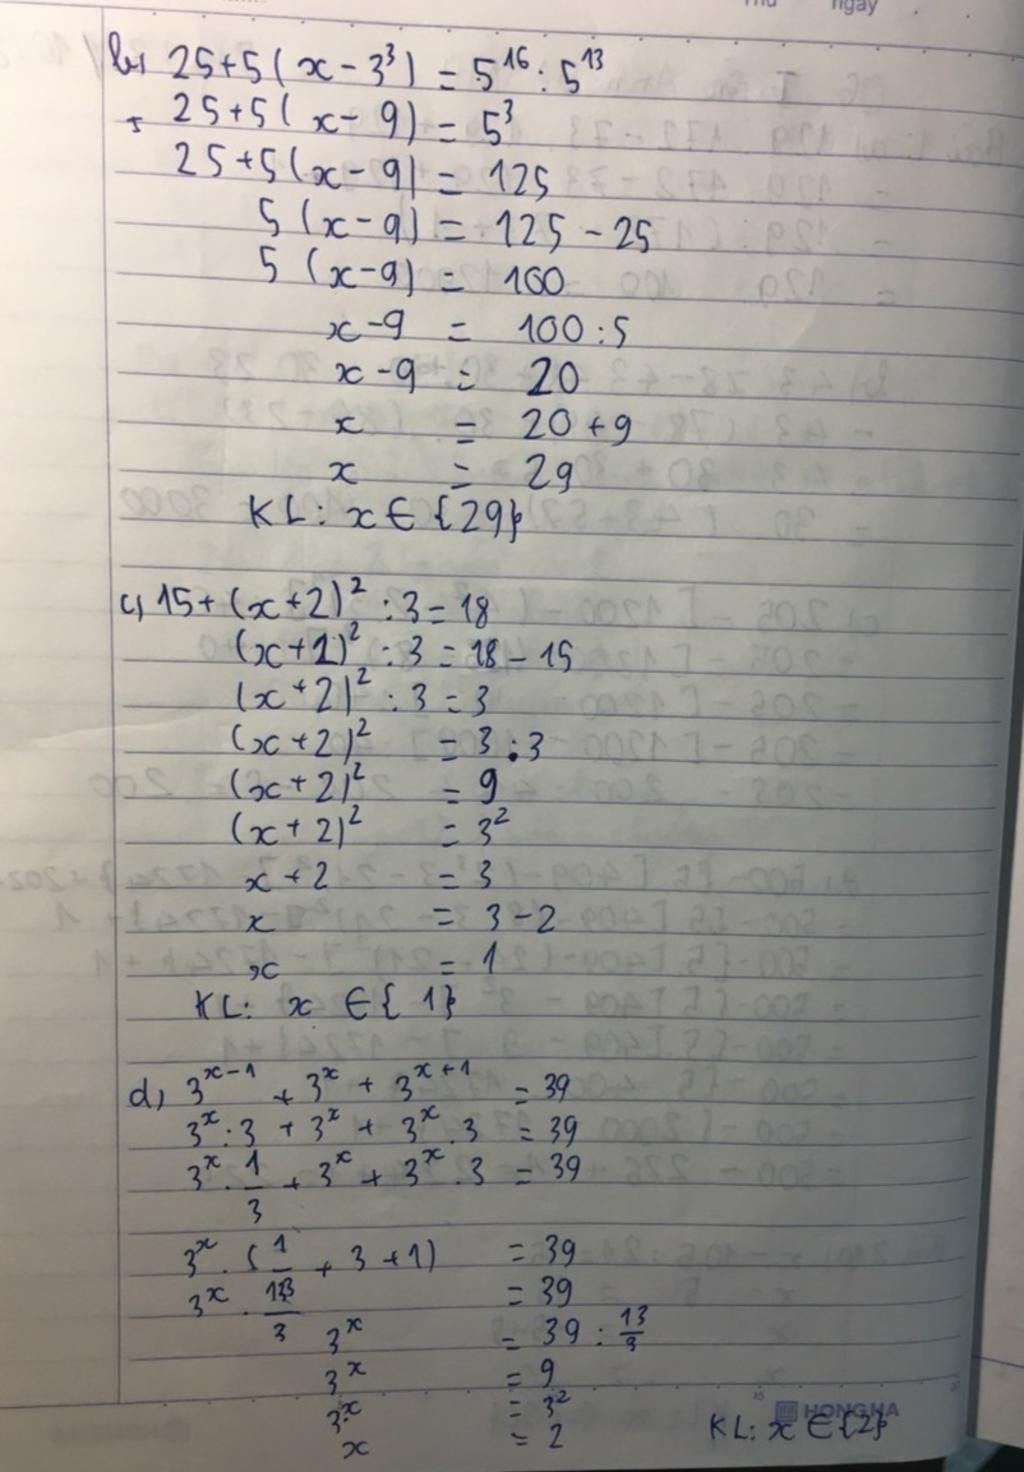 Thứ ngày
b, 25+5(x-3³) = 5¹⁶ : 5¹³
25+5(x-9) = 5³
25+5(x-9) = 125
5(x-9) = 125-25
5(x-9) = 100
x-9 = 100:5
x-9 = 20
x = 20+9
x = 29
KL: x∈{29}
c, 15+(x+2)² :3=18
(x+2)² :3=18-15
(x+2)² :3=3
(x+2)² = 3.3
(x+2)² = 9
(x+2)² = 3²
x+2 = 3
x = 3-2
x = 1
KL: x ∈{1}
d, 3ˣ⁻¹ + 3ˣ + 3ˣ⁺¹ = 39
3ˣ:3 + 3ˣ + 3ˣ.3 = 39
3ˣ.1/3 + 3ˣ + 3ˣ.3 = 39
3ˣ.(1/3 + 3 + 1) = 39
3ˣ.13/3 = 39
3ˣ = 39 : 13/3
3ˣ = 9
3ˣ = 3²
x = 2
KL: x∈{2}
HONG HA